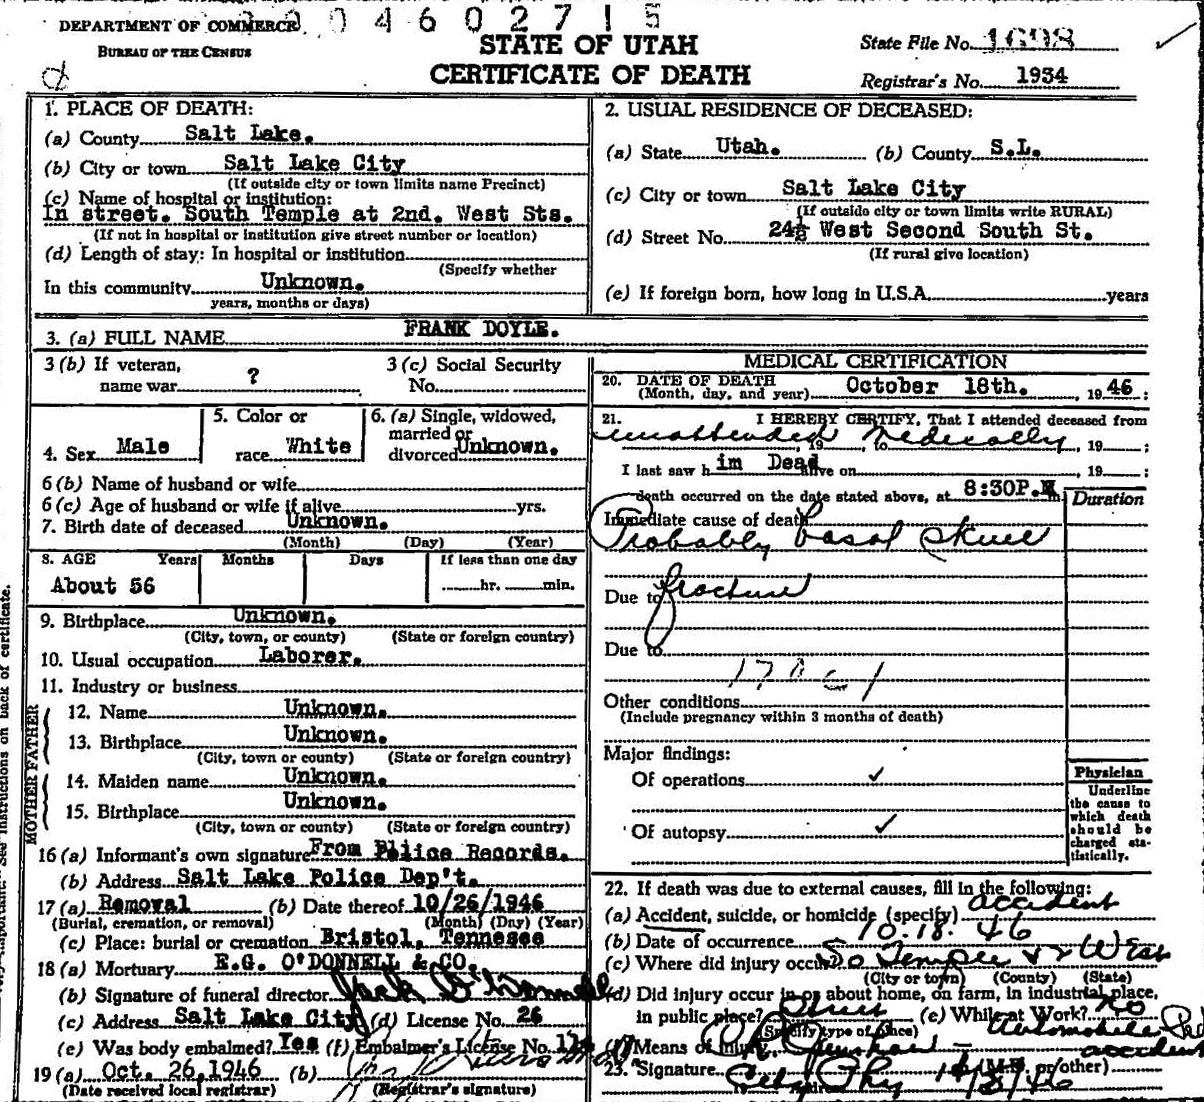 DEPARTMENT OF COMMERCE 0 4 6 0 2 7 1 5
BUREAU OF THE CENSUS
STATE OF UTAH
CERTIFICATE OF DEATH
State File No. 1698
Registrar's No. 1934
1. PLACE OF DEATH:
(a) County Salt Lake.
(b) City or town Salt Lake City
(If outside city or town limits name Precinct)
(c) Name of hospital or institution:
In street. South Temple at 2nd. West Sts.
(If not in hospital or institution give street number or location)
(d) Length of stay: In hospital or institution
(Specify whether
In this community Unknown.
years, months or days)
2. USUAL RESIDENCE OF DECEASED:
(a) State Utah. (b) County S.L.
(c) City or town Salt Lake City
(If outside city or town limits write RURAL)
(d) Street No. 24½ West Second South St.
(If rural give location)
(e) If foreign born, how long in U.S.A. years
3. (a) FULL NAME FRANK DOYLE.
3 (b) If veteran, name war ?
3 (c) Social Security No.
4. Sex Male
5. Color or race White
6. (a) Single, widowed, married or divorced Unknown.
6 (b) Name of husband or wife
6 (c) Age of husband or wife if alive yrs.
7. Birth date of deceased Unknown.
(Month) (Day) (Year)
8. AGE Years Months Days If less than one day
About 56 hr. min.
9. Birthplace Unknown.
(City, town, or county) (State or foreign country)
10. Usual occupation Laborer.
11. Industry or business
FATHER
12. Name Unknown.
13. Birthplace Unknown.
(City, town or county) (State or foreign country)
MOTHER
14. Maiden name Unknown.
15. Birthplace Unknown.
(City, town or county) (State or foreign country)
16 (a) Informant's own signature From Police Records.
(b) Address Salt Lake Police Dep't.
17 (a) Removal (b) Date thereof 10/26/1946
(Burial, cremation, or removal) (Month) (Day) (Year)
(c) Place: burial or cremation Bristol, Tennesee
18 (a) Mortuary E.G. O'DONNELL & CO.
(b) Signature of funeral director Jack O'Donnell
(c) Address Salt Lake City (d) License No. 26
(e) Was body embalmed? Yes (f) Embalmer's License No.
19 (a) Oct. 26, 1946 (b)
(Date received local registrar) (Registrar's signature)
MEDICAL CERTIFICATION
20. DATE OF DEATH October 18th. , 1946 :
(Month, day, and year)
21. I HEREBY CERTIFY, That I attended deceased from
unattended medically , 19 , to , 19 ;
I last saw him Dead alive on , 19 ;
death occurred on the date stated above, at 8:30P.M
Duration
Immediate cause of death
Probably basal skull
Due to fracture
Due to
Other conditions
(Include pregnancy within 3 months of death)
Major findings:
Of operations ✓
Of autopsy ✓
Physician
Underline
the cause to
which death
should be
charged sta-
tistically.
22. If death was due to external causes, fill in the following:
(a) Accident, suicide, or homicide (specify) accident
(b) Date of occurrence 10.18.46
(c) Where did injury occur So Temple & 2 West
(City or town) (County) (State)
(d) Did injury occur in or about home, on farm, in industrial place,
in public place? Street (e) While at Work? No
(Specify type of place)
(f) Means of injury Automobile Ped accident
23. Signature (M.D. or other)
See instructions on back of certificate.